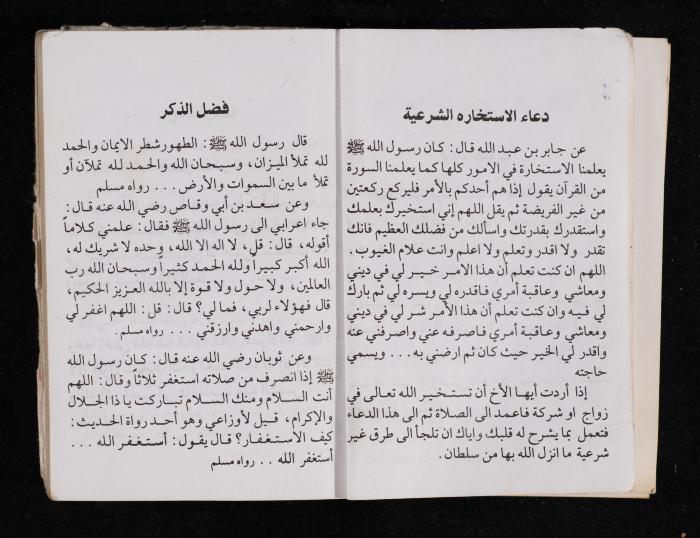 دعاء الاستخاره الشرعية
عن جابر بن عبد الله قال: كان رسول الله ﷺ
يعلمنا الاستخارة في الامور كلها كما يعلمنا السورة
من القرآن يقول إذا هم أحدكم بالأمر فليركع ركعتين
من غير الفريضة ثم يقل اللهم إني استخيرك بعلمك
واستقدرك بقدرتك واسألك من فضلك العظيم فانك
تقدر ولا اقدر وتعلم ولا اعلم وانت علام الغيوب.
اللهم ان كنت تعلم أن هذا الامر خير لي في ديني
ومعاشي وعاقبة أمري فاقدره لي ويسره لي ثم بارك
لي فيه وان كنت تعلم أن هذا الأمر شر لي في ديني
ومعاشي وعاقبة أمري فاصرفه عني واصرفني عنه
واقدر لي الخير حيث كان ثم ارضني به... ويسمي
حاجته
إذا أردت أيها الأخ أن تستخير الله تعالى في
زواج او شركة فاعمد الى الصلاة ثم الى هذا الدعاء
فتعمل بما يشرح له قلبك واياك ان تلجأ الى طرق غير
شرعية ما انزل الله بها من سلطان.
فضل الذكر
قال رسول الله ﷺ: الطهورشطر الايمان والحمد
لله تملأ الميزان، وسبحان الله والحمد لله تملآن أو
تملأ ما بين السموات والأرض... رواه مسلم
وعن سعد بن أبي وقاص رضي الله عنه قال:
جاء اعرابي الى رسول الله ﷺ فقال: علمني كلاماً
أقوله، قال: قل، لا اله الا الله، وحده لا شريك له،
الله أكبر كبيراً ولله الحمد كثيراً وسبحان الله رب
العالمين، ولا حول ولا قوة إلا بالله العزيز الحكيم،
قال فهؤلاء لربي، فما لي؟ قال: قل: اللهم اغفر لي
وارحمني واهدني وارزقني... رواه مسلم.
وعن ثوبان رضي الله عنه قال: كان رسول الله
ﷺ إذا انصرف من صلاته استغفر ثلاثاً وقال: اللهم
أنت السلام ومنك السلام تباركت يا ذا الجلال
والإكرام، قيل لأوزاعي وهو أحد رواة الحديث:
كيف الأستغفار؟ قال يقول: أستغفر الله...
أستغفر الله.. رواه مسلم